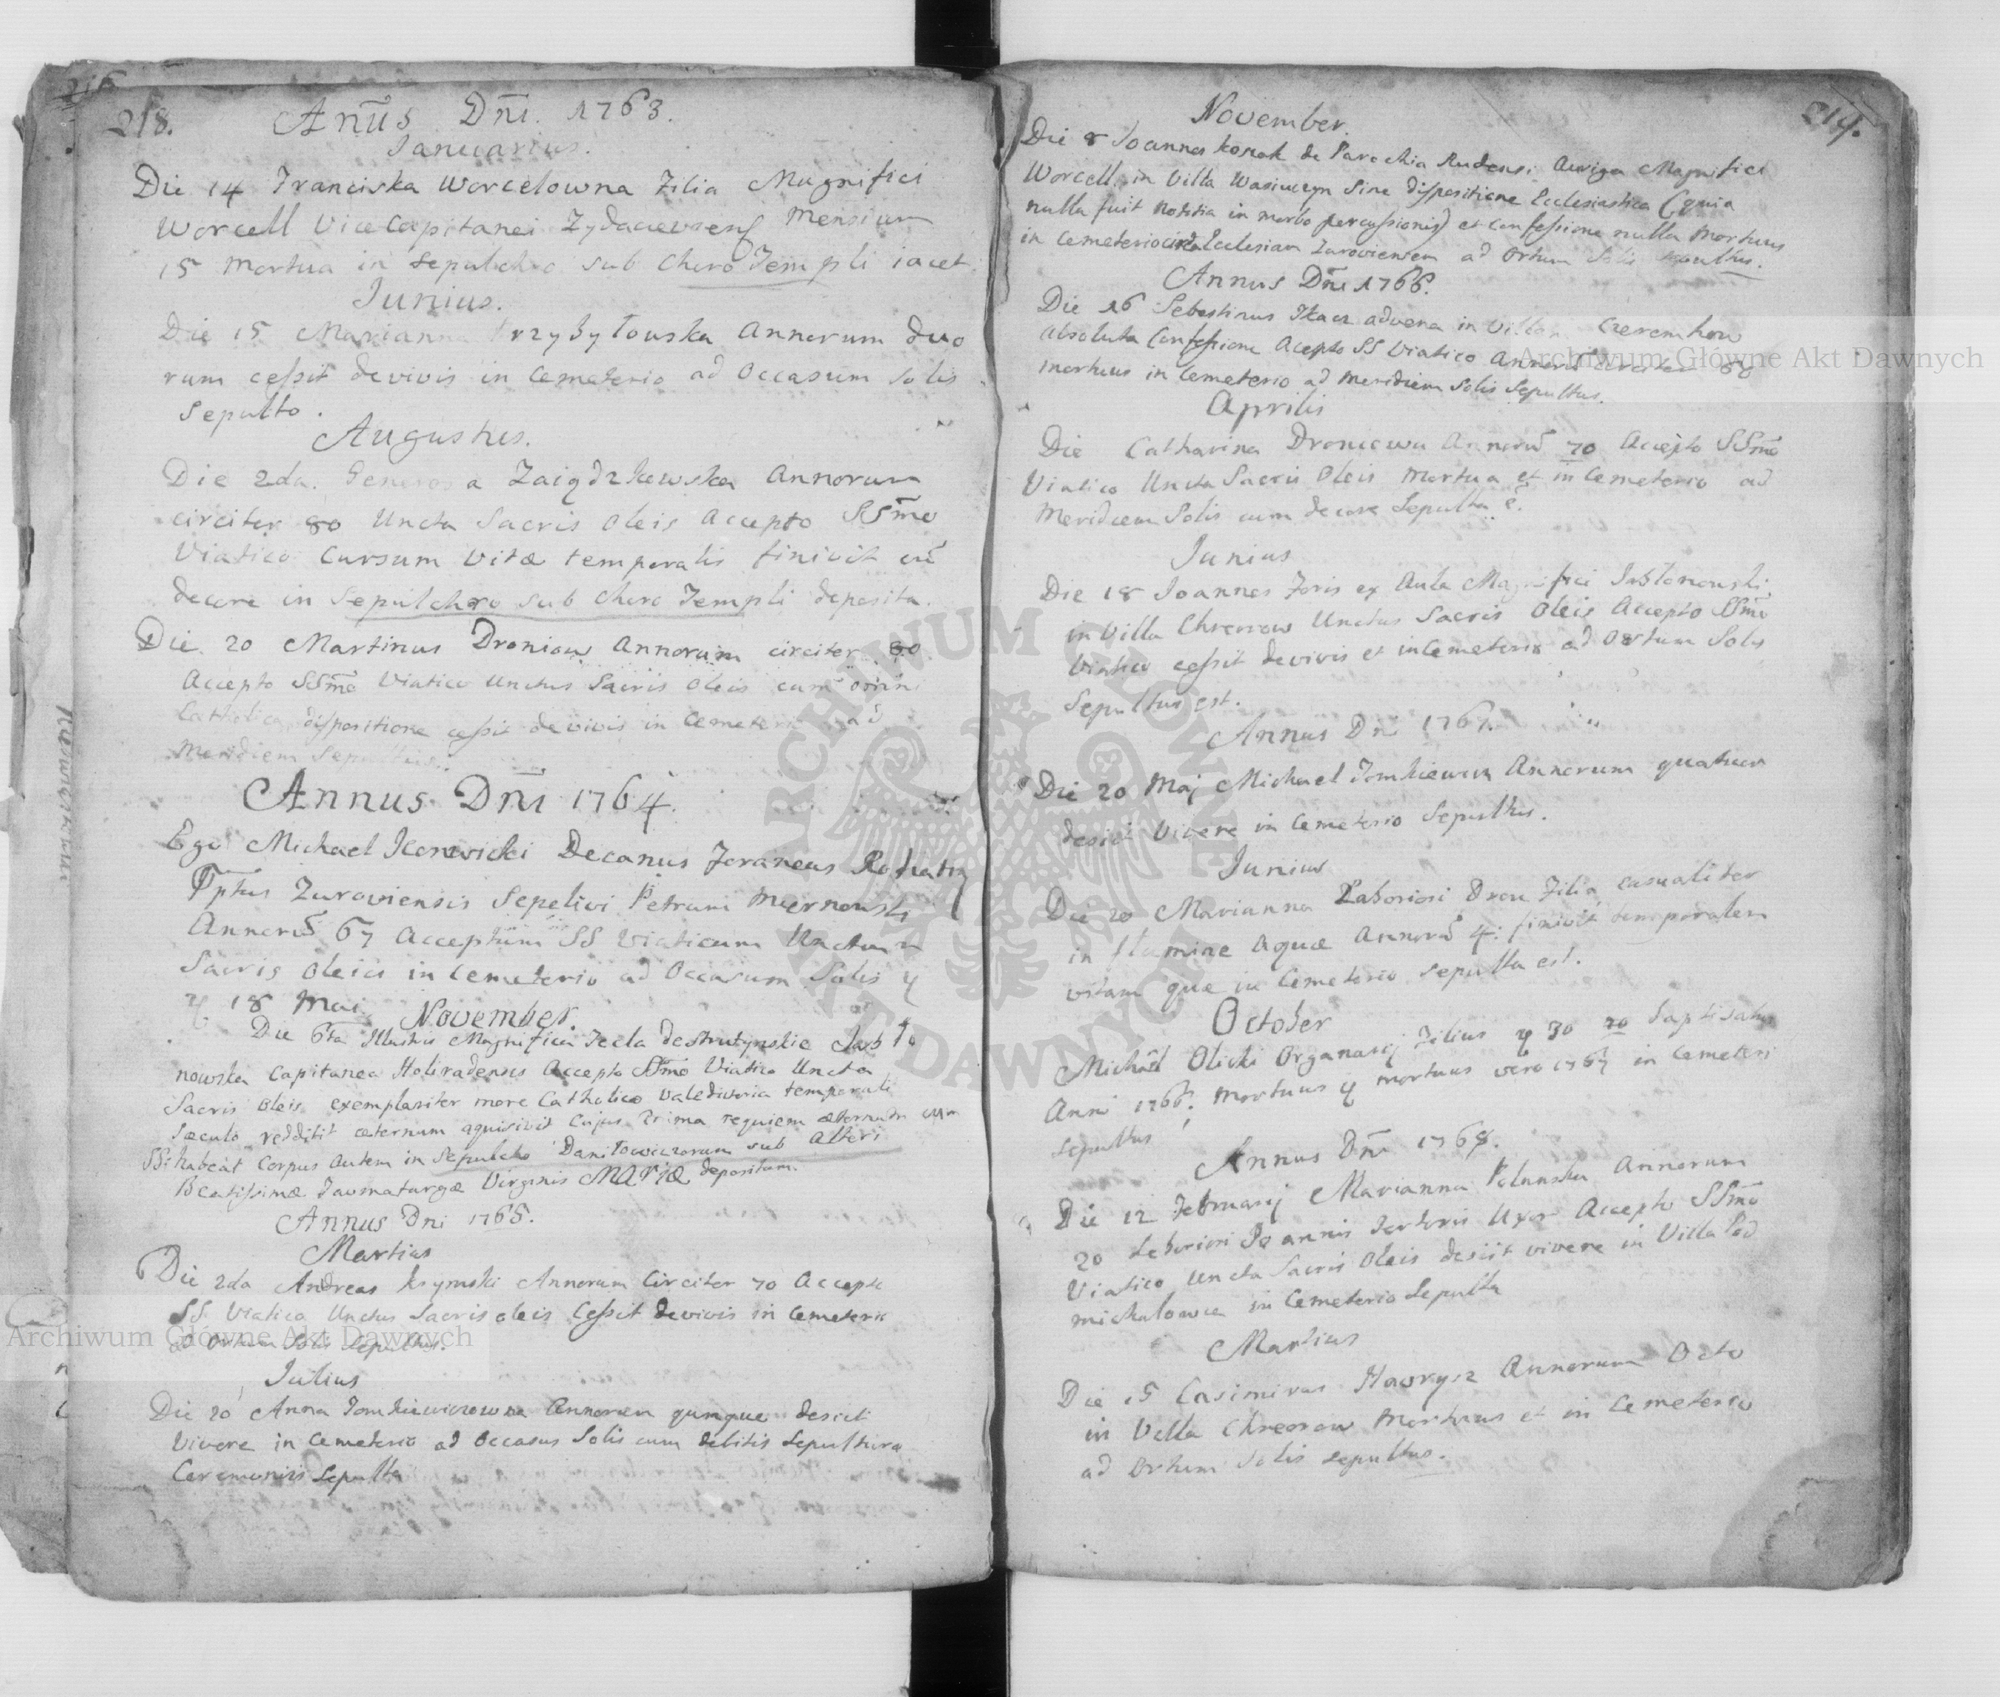 218.
Anus Dni. 1763.
Januarius.
Die 14 Franciska Worcelowna Filia Magnifici
Worcell Vice Capitanei Zydaceviens Mensium
15 mortua in sepulchro sub Choro Templi iacet.
Junius.
Die 15 Marianna Przybyłouska Annorum duo
rum cessit devivis in Cemeterio ad Occasum Solis
Sepulto.
Augustus.
Die 2da. Generosa Annorum
circiter 80 Uncta Sacris Oleis Accepto SSmo
Viatico Cursum Vitæ temporalis finivit cũ
decore in Sepulchro sub Choro Templi deposita.
Die 20 Martinus Droniow Annorum circiter
Accepto SSmo Viatico Unctus Sacris Oleis cum omni
Catholica dispositione cessit devivis in Cemeterio ad
Meridiem Sepultus.
Annus Dni 1764.
Ego Michael Decanus
Zuroviensis Sepelivi Petrum
Annorũ 67 Acceptum SS Viaticum Unctum
Sacris Oleis in Cemeterio ad Occasum Solis
18 Mai
November.
Die 6ta Illustris Magnifica Tecla
nowska Capitanea Accepto SSmo Viatico Uncta
Sacris Oleis exemplariter more Catholico temporali
sæculo reddidit æternum aquisivit Cujus Anima requiem æternam cum
SS: habeat Corpus autem in Sepulchro Daniłowiczorum sub Altari
Beatissimæ Taumaturgæ Virginis MARIÆ depositum.
Annus Dni 1765.
Martius
Die 2da Andreas Krynski Annorum Circiter 70 Accepto
SS Viatico Unctus Sacris oleis Cessit devivis in Cemeterio
ad Ortum Solis Sepultus.
Julius
Die 20 Anna Tomkiewiczowna Annorum quinque desiit
Vivere in Cemeterio ad Occasus Solis cum debitis Sepultura
Ceremoniis Sepulta
219.
November.
Die 8 Joannes Kozak de Parochia Rudensi Auriga Magnifici
Worcell in Villa Wasiuczyn Sine dispositione Ecclesiastica (quia
nulla fuit notitia in morbo percussionis) et confessione nulla mortuus
in Cemeterio circa Ecclesiam Zuroviensem ad Ortum Solis sepultus.
Annus Dni 1766.
Die 16 Sebastinus Tkacz advena in Villam Czeremchow
absoluta Confessione Acepto SS Viatico Annorũ circiter 80
mortuus in Cemeterio ad Meridiem Solis Sepultus.
Aprilis
Die Catharina Annorũ 70 Accepto SSmo
Viatico Uncta Sacris Oleis Mortua et in Cemeterio ad
Meridiem Solis cum decore Sepulta ẽ.
Junius
Die 18 Joannes ex Aula Magnifici Jablonowski
in Villa Unctus Sacris Oleis Accepto SSmo
Viatico cessit devivis et in Cemeterio ad Ortum Solis
Sepultus est.
Annus Dni 1767.
Die 20 Maj Michael Annorum quatuor
desiit Vivere in Cemeterio Sepultus.
Junius
Die 20 Marianna Laboriosi Filia casualiter
in flumine Aquæ Annorũ 4: finivit temporalem
vitam quæ in Cemeterio sepulta est.
October
Michael Olicki Organarij Filius 30
Anni 1766. Mortuus mortuus vero 1767 in Cemeteri
sepultus
Annus Dni 1768.
Die 12 Februarij Marianna Annorum
20 Laboriosi Joannis Uxor Accepto SSmo
Viatico Uncta Sacris Oleis desiit vivere in Villa Pod
michalowce in Cemeterio Sepulta
Martius
Die 15 Casimirus Hawrysz Annorum Octo
in Villa Mortuus et in Cemeterio
ad Ortum Solis sepultus.
Archiwum Główne Akt Dawnych
Archiwum Główne Akt Dawnych
ARCHIWUM GŁÓWNE AKT DAWNYCH